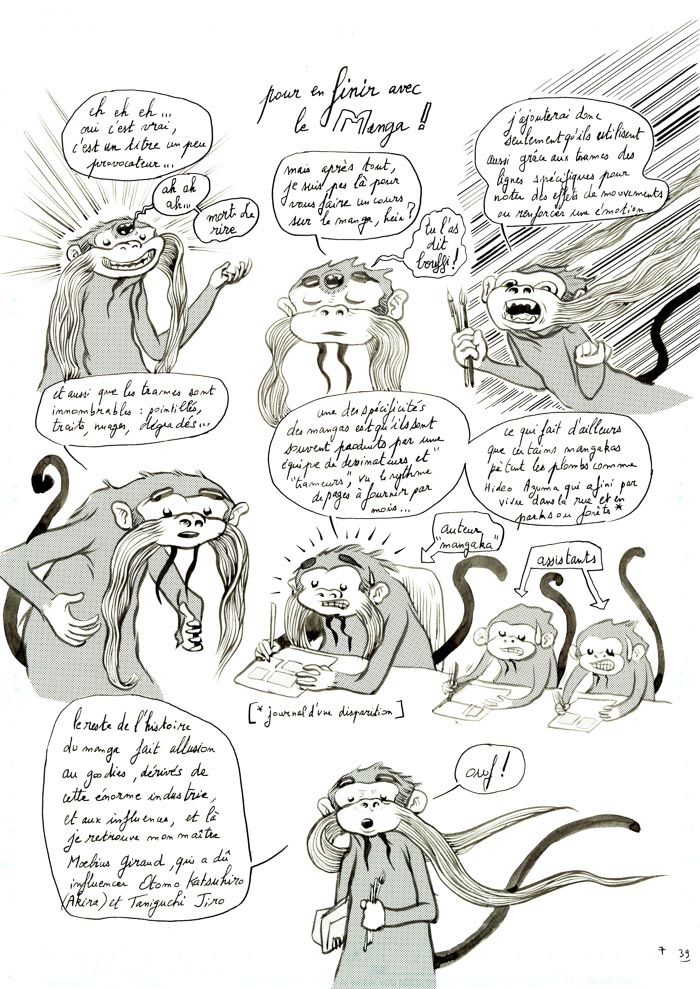 pour en finir avec
le Manga !
eh eh eh ...
oui c'est vrai,
c'est un titre un peu
provocateur ...
ah ah
ah...
mort de
rire
mais après tout,
je suis pas là pour
vous faire un cours
sur le manga, hein ?
tu l'as
dit
bouffi !
j'ajouterai donc
seulement qu'ils utilisent
aussi grâce aux trames des
lignes spécifiques pour
noter des effets de mouvements
ou renforcer une émotion
et aussi que les trames sont
innombrables : pointillés,
traits, nuages, dégradés ...
une des spécificités
des mangas est qu'ils sont
souvent produits par une
équipe de dessinateurs et
"trameurs", vu le rythme
de pages à fournir par
mois ...
ce qui fait d'ailleurs
que certains mangakas
pètent les plombs comme
Hideo Azuma qui a fini par
vivre dans la rue et en
parks ou forêts *
auteur
"mangaka"
assistants
[* journal d'une disparition]
le reste de l'histoire
du manga fait allusion
au goodies, dérivés de
cette énorme industrie,
et aux influences, et là
je retrouve mon maître
Moebius Giraud, qui a dû
influencer Otomo Katsuhiro
(Akira) et Taniguchi Jiro
ouf !
7 39